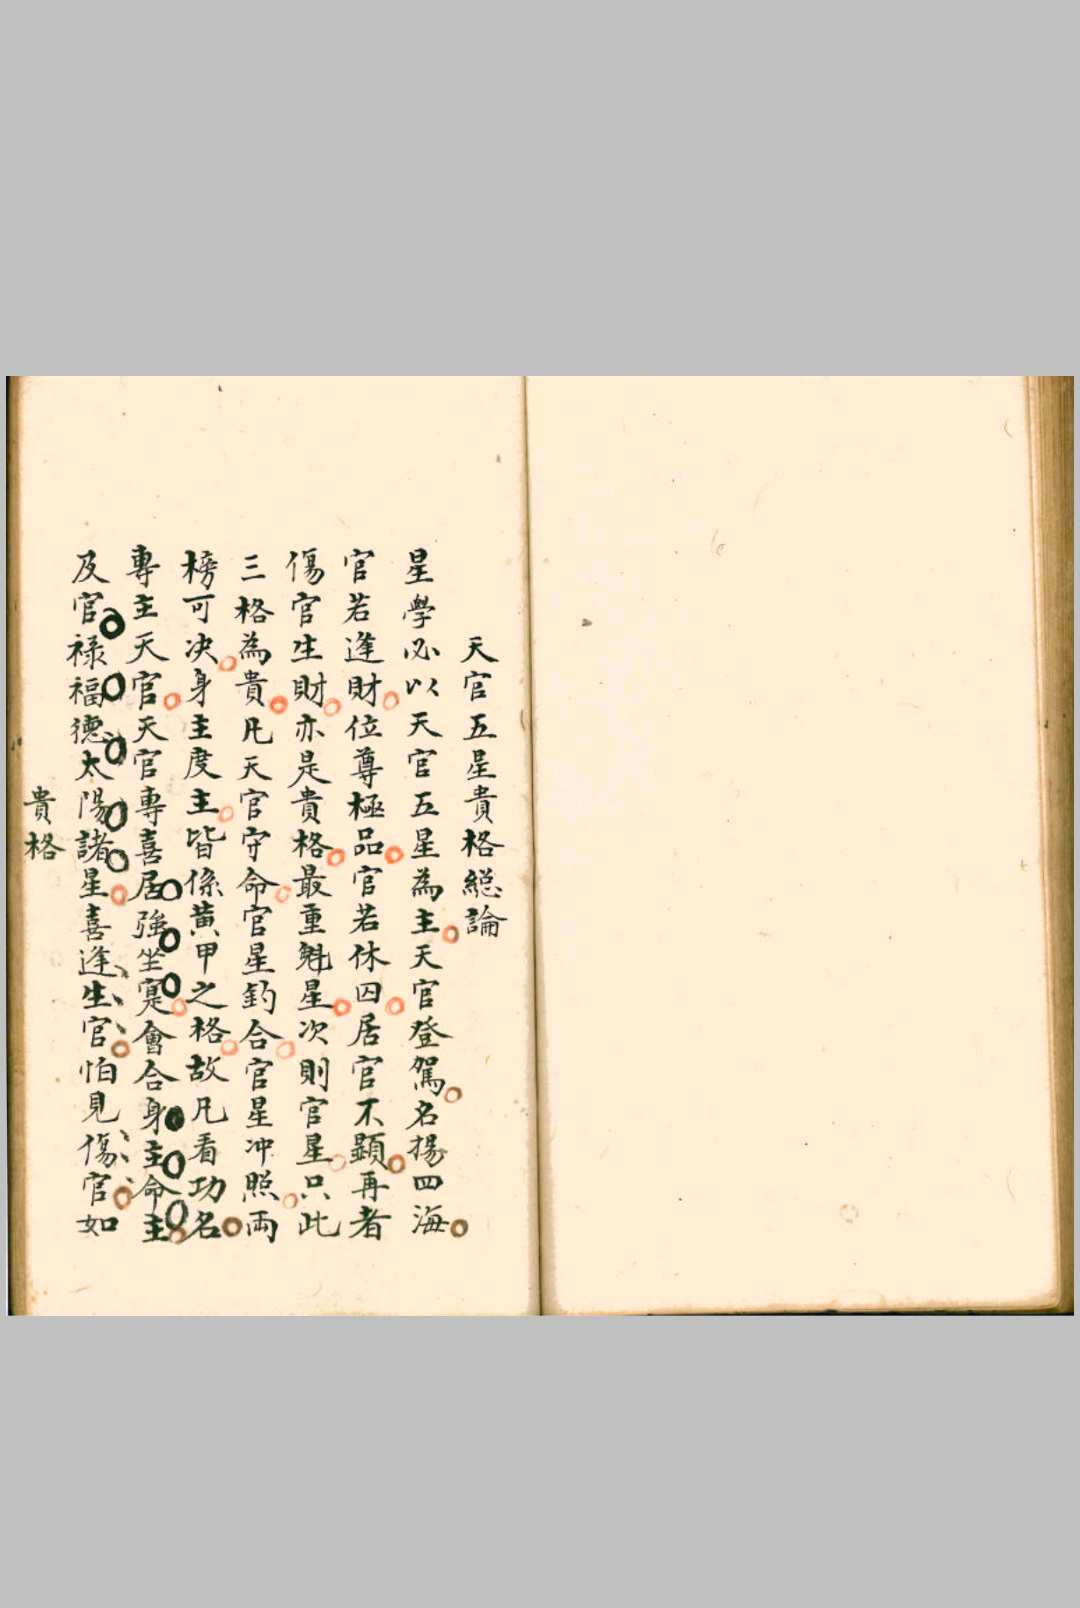 天官五星貴格総論
星學必以天官五星為主天官登駕名揚四海
官若逢財位尊極品官若休囚居官不顕再者
傷官生財亦是貴格最重魁星次則官星只此
三格為貴凡天官守命官星釣合官星冲照両
榜可决身主度主皆係黄甲之格故凡看功名
專主天官天官專喜居強坐寔會合身主命主
及官禄福德太陽諸星喜逢生官怕見傷官如
貴格